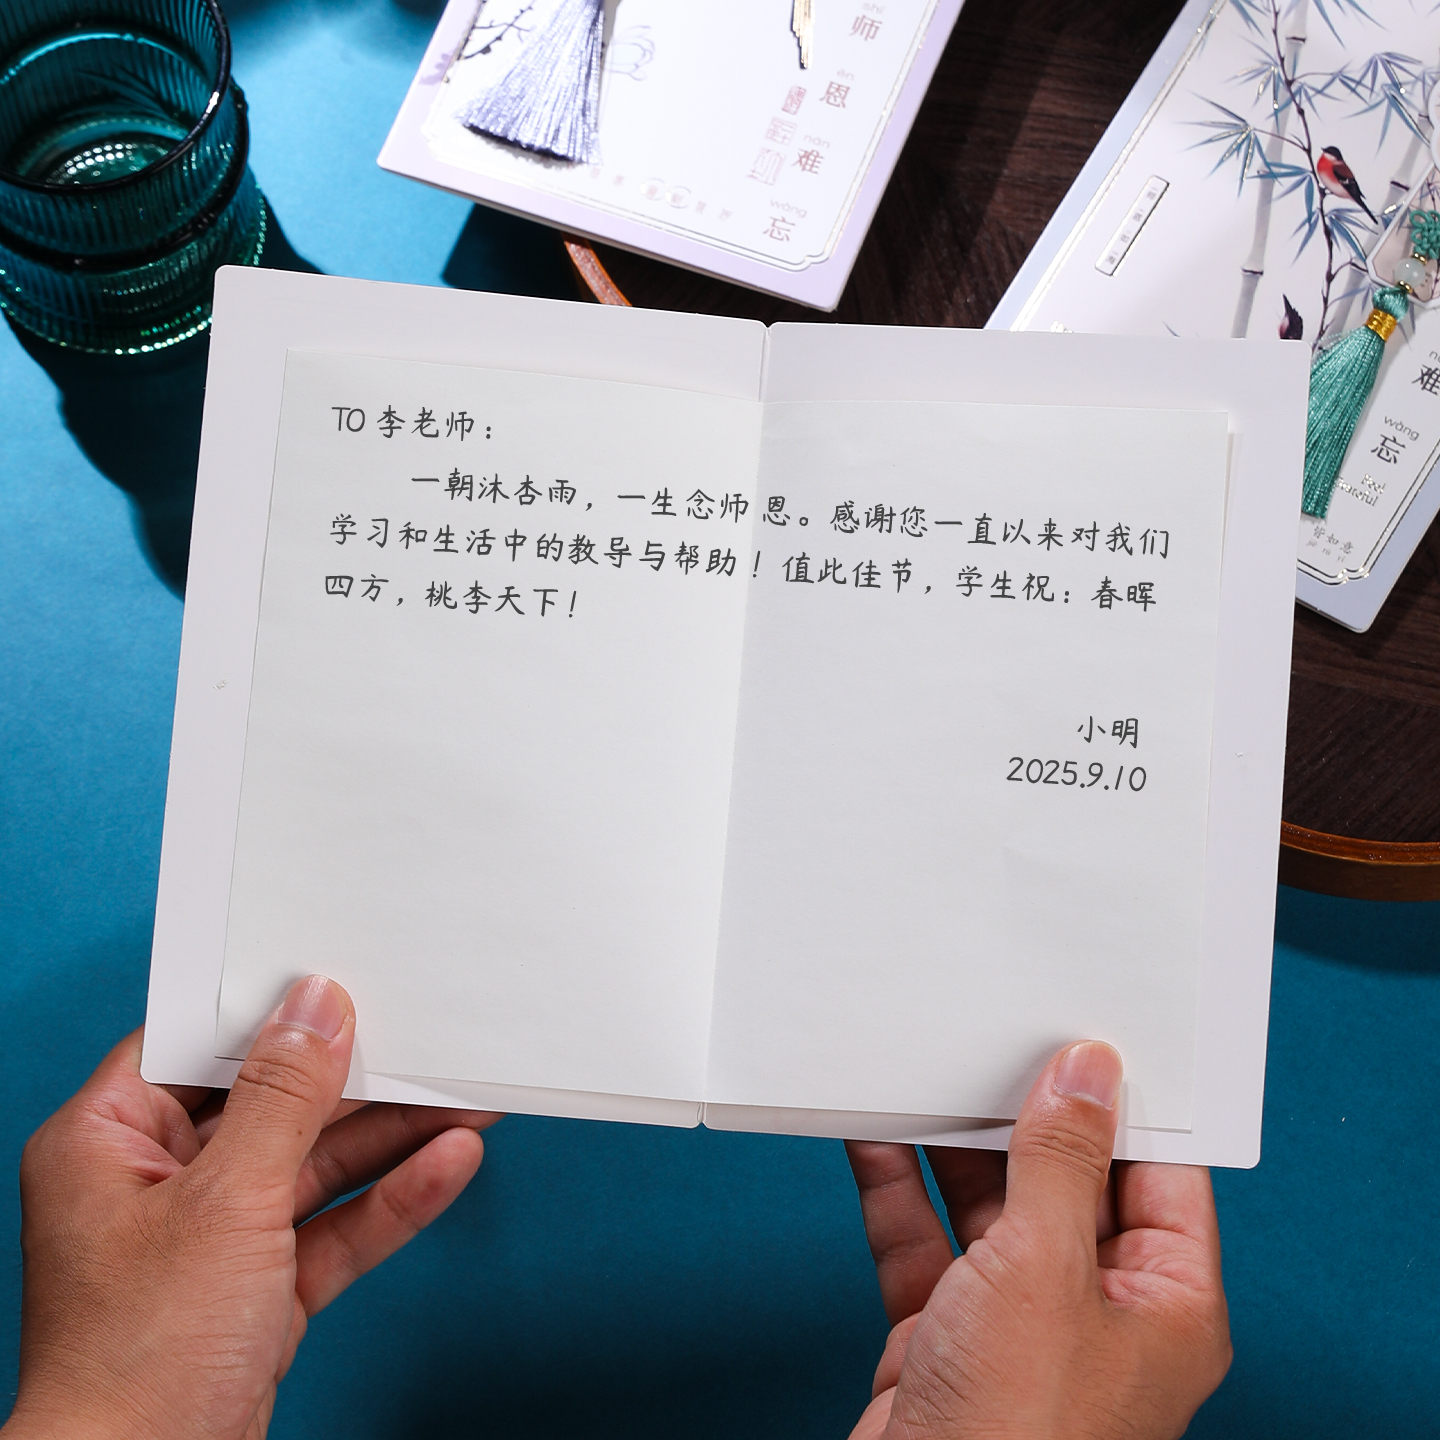 shī
师
ēn
恩
nán
难
wàng
忘
难
wàng
忘
皆如意
TO 李老师：
一朝沐杏雨，一生念师恩。感谢您一直以来对我们
学习和生活中的教导与帮助！值此佳节，学生祝：春晖
四方，桃李天下！
小明
2025.9.10